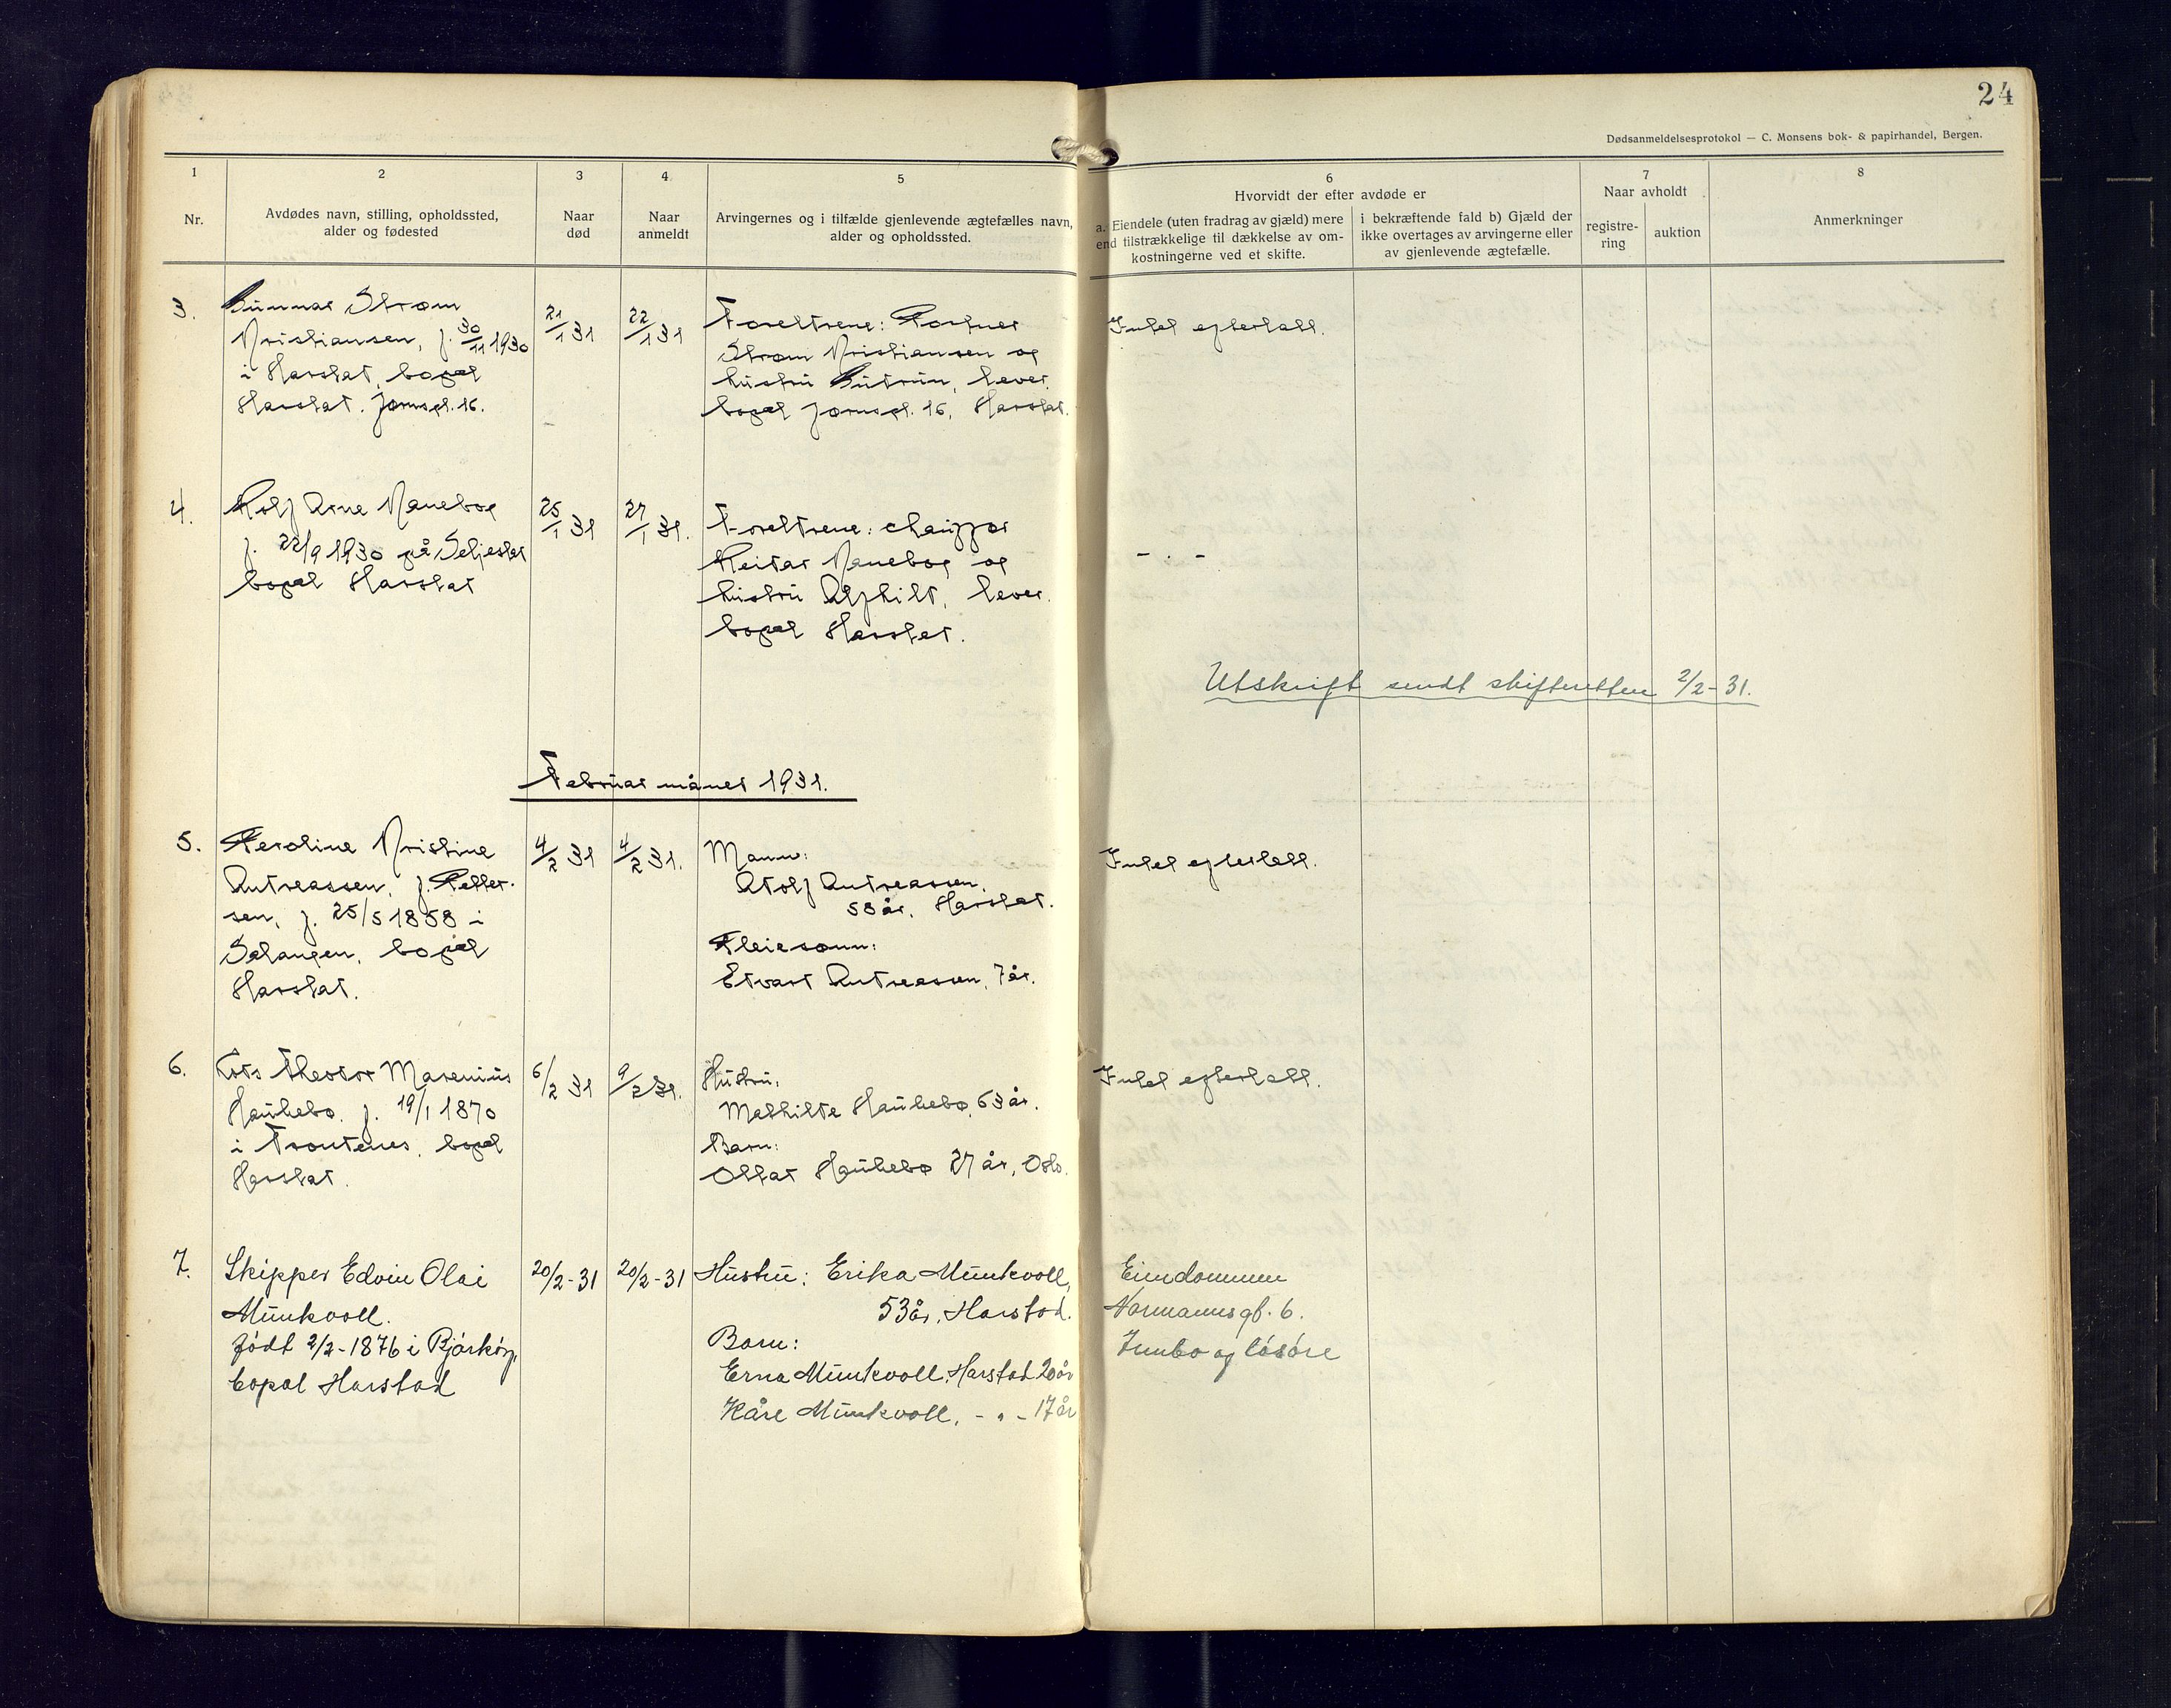 24
Dødsanmeldelsesprotokol — C. Monsens bok- & papirhandel, Bergen.
1
2
3
4
5
6
7
8
Nr.
Avdødes navn, stilling, opholdssted,
alder og fødested
Naar
død
Naar
anmeldt
Arvingernes og i tilfælde gjenlevende ægtefælles navn,
alder og opholdssted.
Hvorvidt der efter avdøde er
a. Eiendele (uten fradrag av gjæld) mere
end tilstrækkelige til dækkelse av om-
kostningerne ved et skifte.
i bekræftende fald b) Gjæld der
ikke overtages av arvingerne eller
av gjenlevende ægtefælle.
Naar avholdt
registre-
ring
auktion
Anmerkninger
3.
Gunnar Strøm
Kristiansen, f. 30/11 1930
i Harstad, bopæl
Harstad.
16.
21/1 31
22/1 31
Foreldrene:
Strøm Kristiansen og
hustru Gudrun, lever,
bopæl 16, Harstad.
Intet efterlatt.
4.
Rolf Arne Kanebog
f. 22/9 1930 på Seljestad
bopæl Harstad
25/1 31
27/1 31.
Foreldrene: chauffør
Reidar Kanebog og
hustru Alfhild, lever.
bopæl Harstad.
- . -
Utskrift sendt skifteretten 2/2-31.
Februar måned 1931.
5.
Karoline Kristine
Andreassen, f. Petter-
sen, f. 25/5 1858 i
Salangen, bopæl
Harstad.
4/2 31
4/2 31.
Mann:
Adolf Andreassen,
58 år, Harstad.
Pleiesønn:
Edvart Andreassen, 7 år.
Intet efterlatt.
6.
Theodor Marenius
Haukebø, f. 19/1 1870
i Trondenes, bopæl
Harstad.
6/2 31
9/2 31.
Hustru,
Mathilde Haukebø, 63 år.
Barn:
Ottar Haukebø 27 år, Oslo.
Intet efterlatt.
7.
Skipper Edvin Olai
Munkvoll.
født 2/2-1876 i Bjarkøy,
bopæl Harstad
20/2-31
20/2-31
Hustru: Erika Munkvoll,
53 år, Harstad.
Barn:
Erna Munkvoll, Harstad 20 år
Kåre Munkvoll, - " - 17 år
Eiendommen
Normannsgt. 6.
Innbo og løsøre